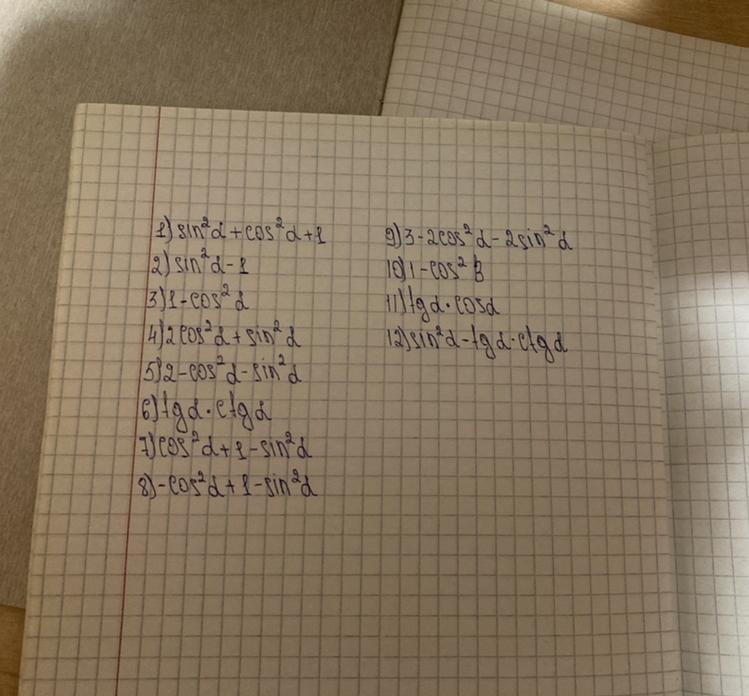 1) sin²α + cos²α + 1
2) sin²α - 1
3) 1 - cos²α
4) 2cos²α + sin²α
5) 2 - cos²α - sin²α
6) tgα · ctgα
7) cos²α + 1 - sin²α
8) -cos²α + 1 - sin²α
9) 3 - 2cos²α - 2sin²α
10) 1 - cos²β
11) tgα · cosα
12) sin²α - tgα · ctgα